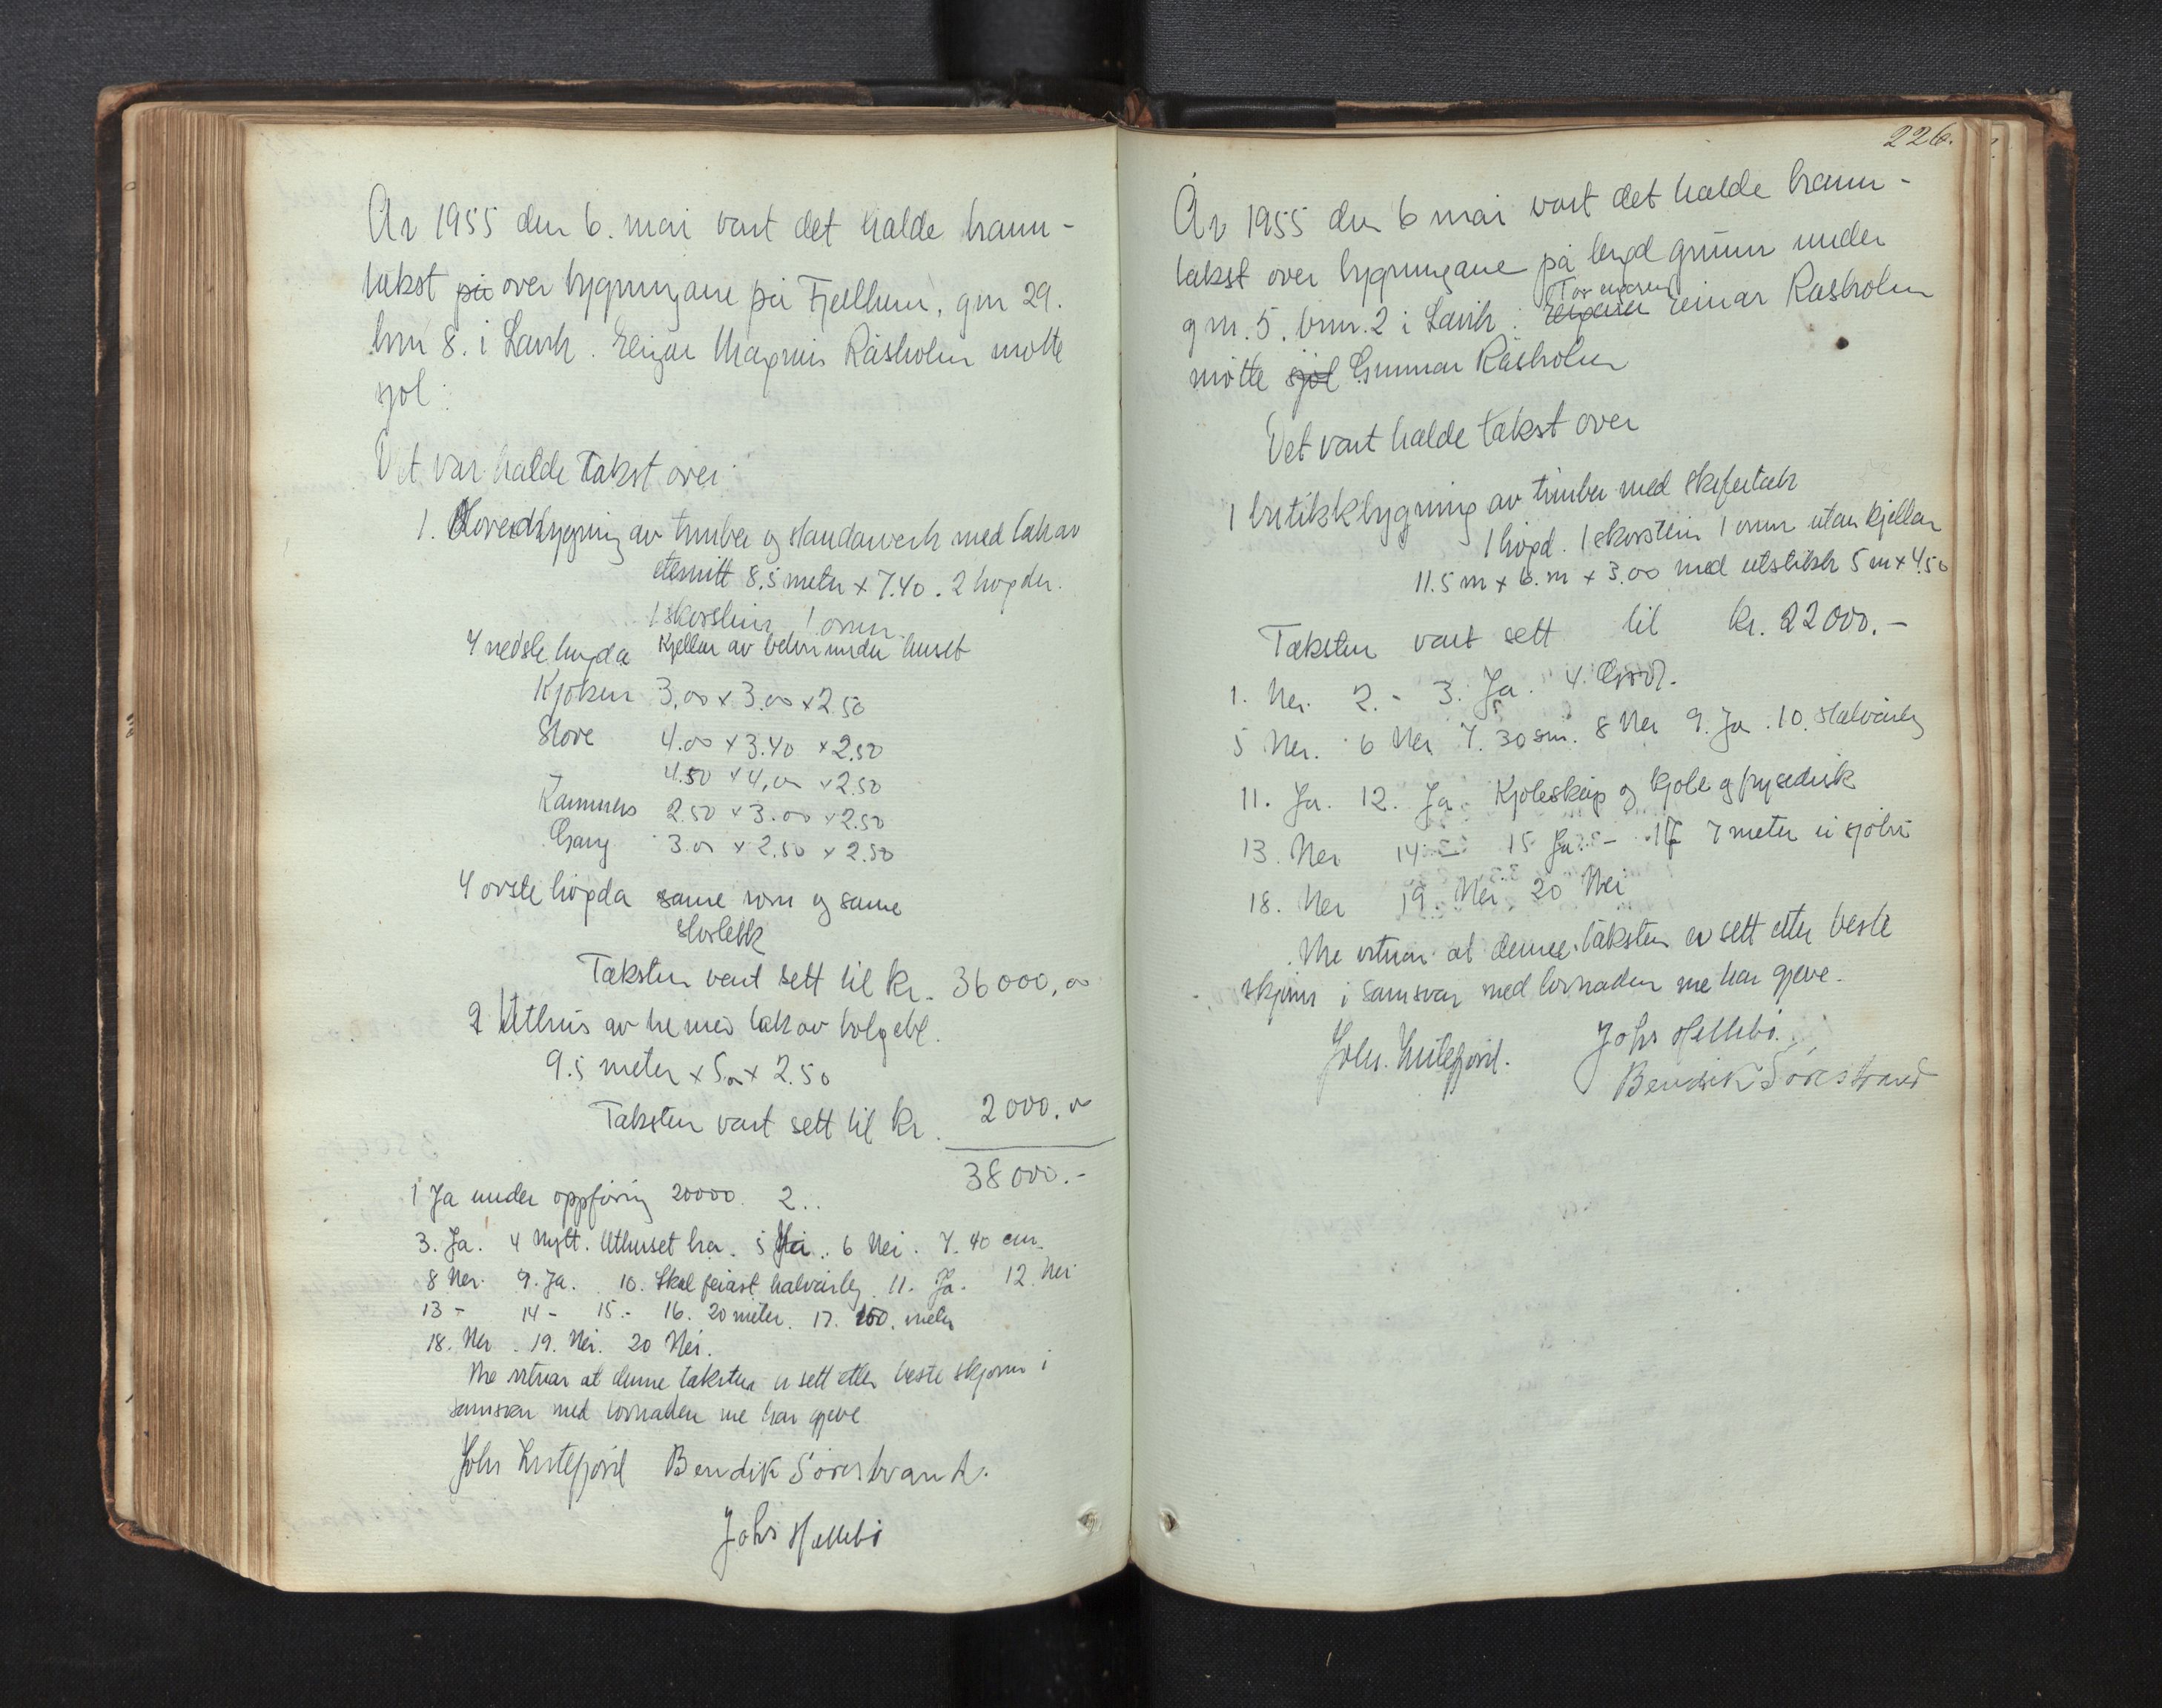 År 1955 den 6. mai vart det halde brann-
takst på over bygningane på Fjellheim, gnr 29.
bnr 8. i Lavik. Eigar Magnus Råsholm møtte
sjøl:
Det var halde takst over:
1. Hovedbygning av timber og standarverk med tak av
eternitt 8.5 meter x 7.40. 2 høgder.
1 skorstein 1 omn.
I nedste høgda Kjellar av betong under huset
Kjøken 3,00 x 3.00 x 2.50
Stove 4.00 x 3.40 x 2.50
4.50 x 4,00 x 2.50
Kammers 2.50 x 3.00 x 2.50
Gang 3.00 x 2.50 x 2.50
I øvste høgda same rom og same
storleik
Taksten vart sett til kr. 36000,00
2 Uthus av tre med tak av bølgebl.
9.5 meter x 5,00 x 2.50
Taksten vart sett til kr. 2000.00
38000.-
1 Ja under oppføring 20000. 2..
3. Ja. 4 Nytt. Uthuset bra. 5 Nei.. 6 Nei. 7. 40 cm.
8 Nei. 9. Ja. 10. Skal feiast halvårleg. 11. Ja. 12. Nei
13 - 14 - 15.- 16. 20 meter. 17. 100. meter
18. Nei. 19. Nei. 20 Nei.
Me vitnar at denne taksten er sett etter beste skjønn i
samsvar med lovnaden me har gjeve
Johs Bendik Sørestrand.
Johs Hellebø
226.
År 1955 den 6 mai vart det halde brann-
takst over bygningane på bygd grunn under
gnr. 5. bnr. 2 i Lavik: Einar Råsholm
møtte sjøl Gunnar Råsholm
Det vart halde takst over
1 butikkbygning av timber med skifertak
1 høgd. 1 skorstein 1 omn utan kjellar
11.5 m x 6. m x 3.00 med utstikk 5 m x 4.50
Taksten vart sett til kr. 22000.-
1. Nei. 2. - 3. Ja. 4. God.
5 Nei. 6 Nei 7. 30 sm. 8 Nei 9. Ja. 10. Halvårleg
11. Ja. 12. Ja. Kjøleskap og kjøle og frysedisk
13. Nei 14 - 15 Ja - 17 7 meter ei sjøbu
18. Nei 19. Nei 20 Nei
Me vitnar at denne taksten er sett etter beste
skjønn i samsvar med lovnaden me har gjeve.
Johs. Johs Hellebø.
Bendik Sørestrand